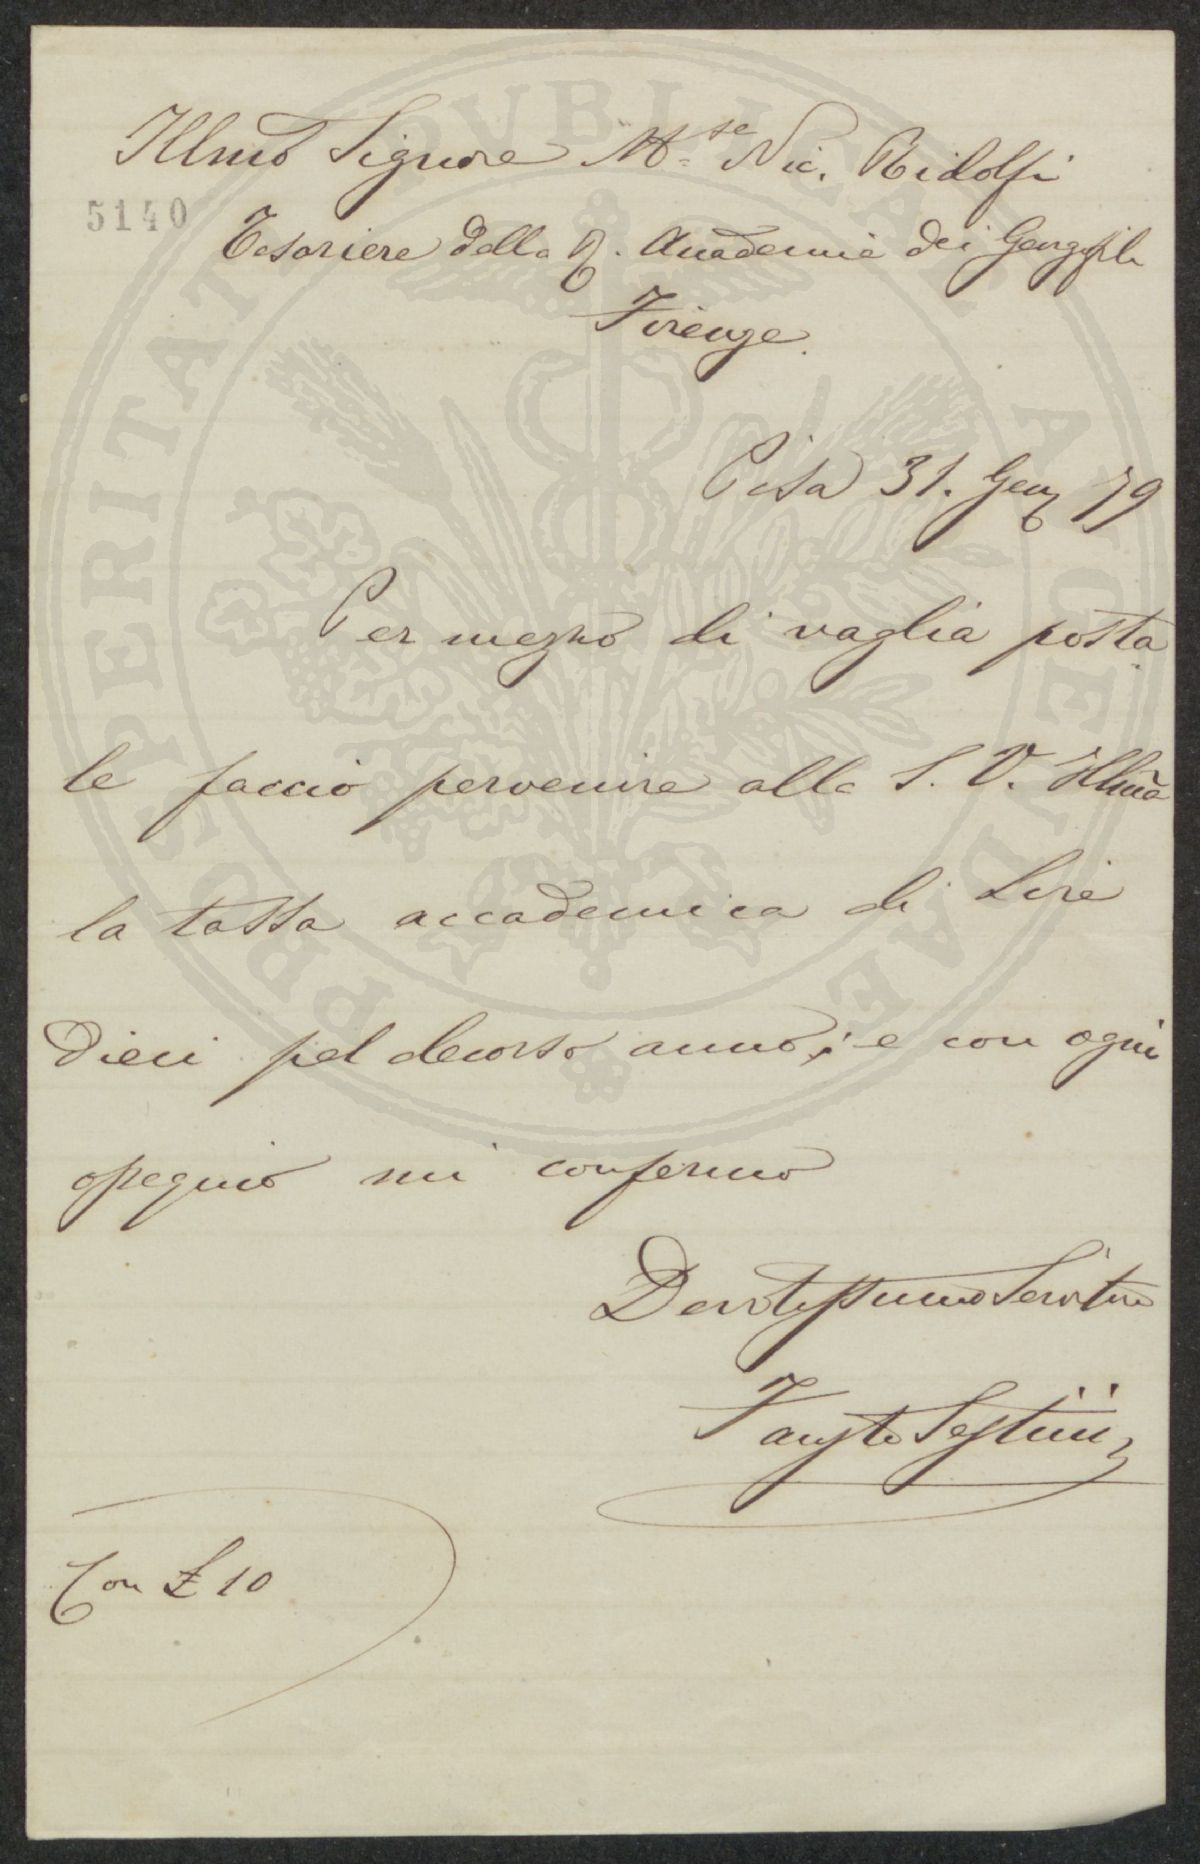 Illmo Signore M.se Nic. Ridolfi
5140
Tesoriere della R. Accademia dei Georgofili
Firenze.
Pisa 31. Gen 79
Per mezzo di vaglia posta
le faccio pervenire alla S. V. Illma
la tassa accademica di Lire
Dieci pel decorso anno; e con ogni
ossequio mi confermo
Devotissimo Servitore
Fausto Sestini
Con £ 10
PROSPERITATI PUBLICAE AUGENDAE